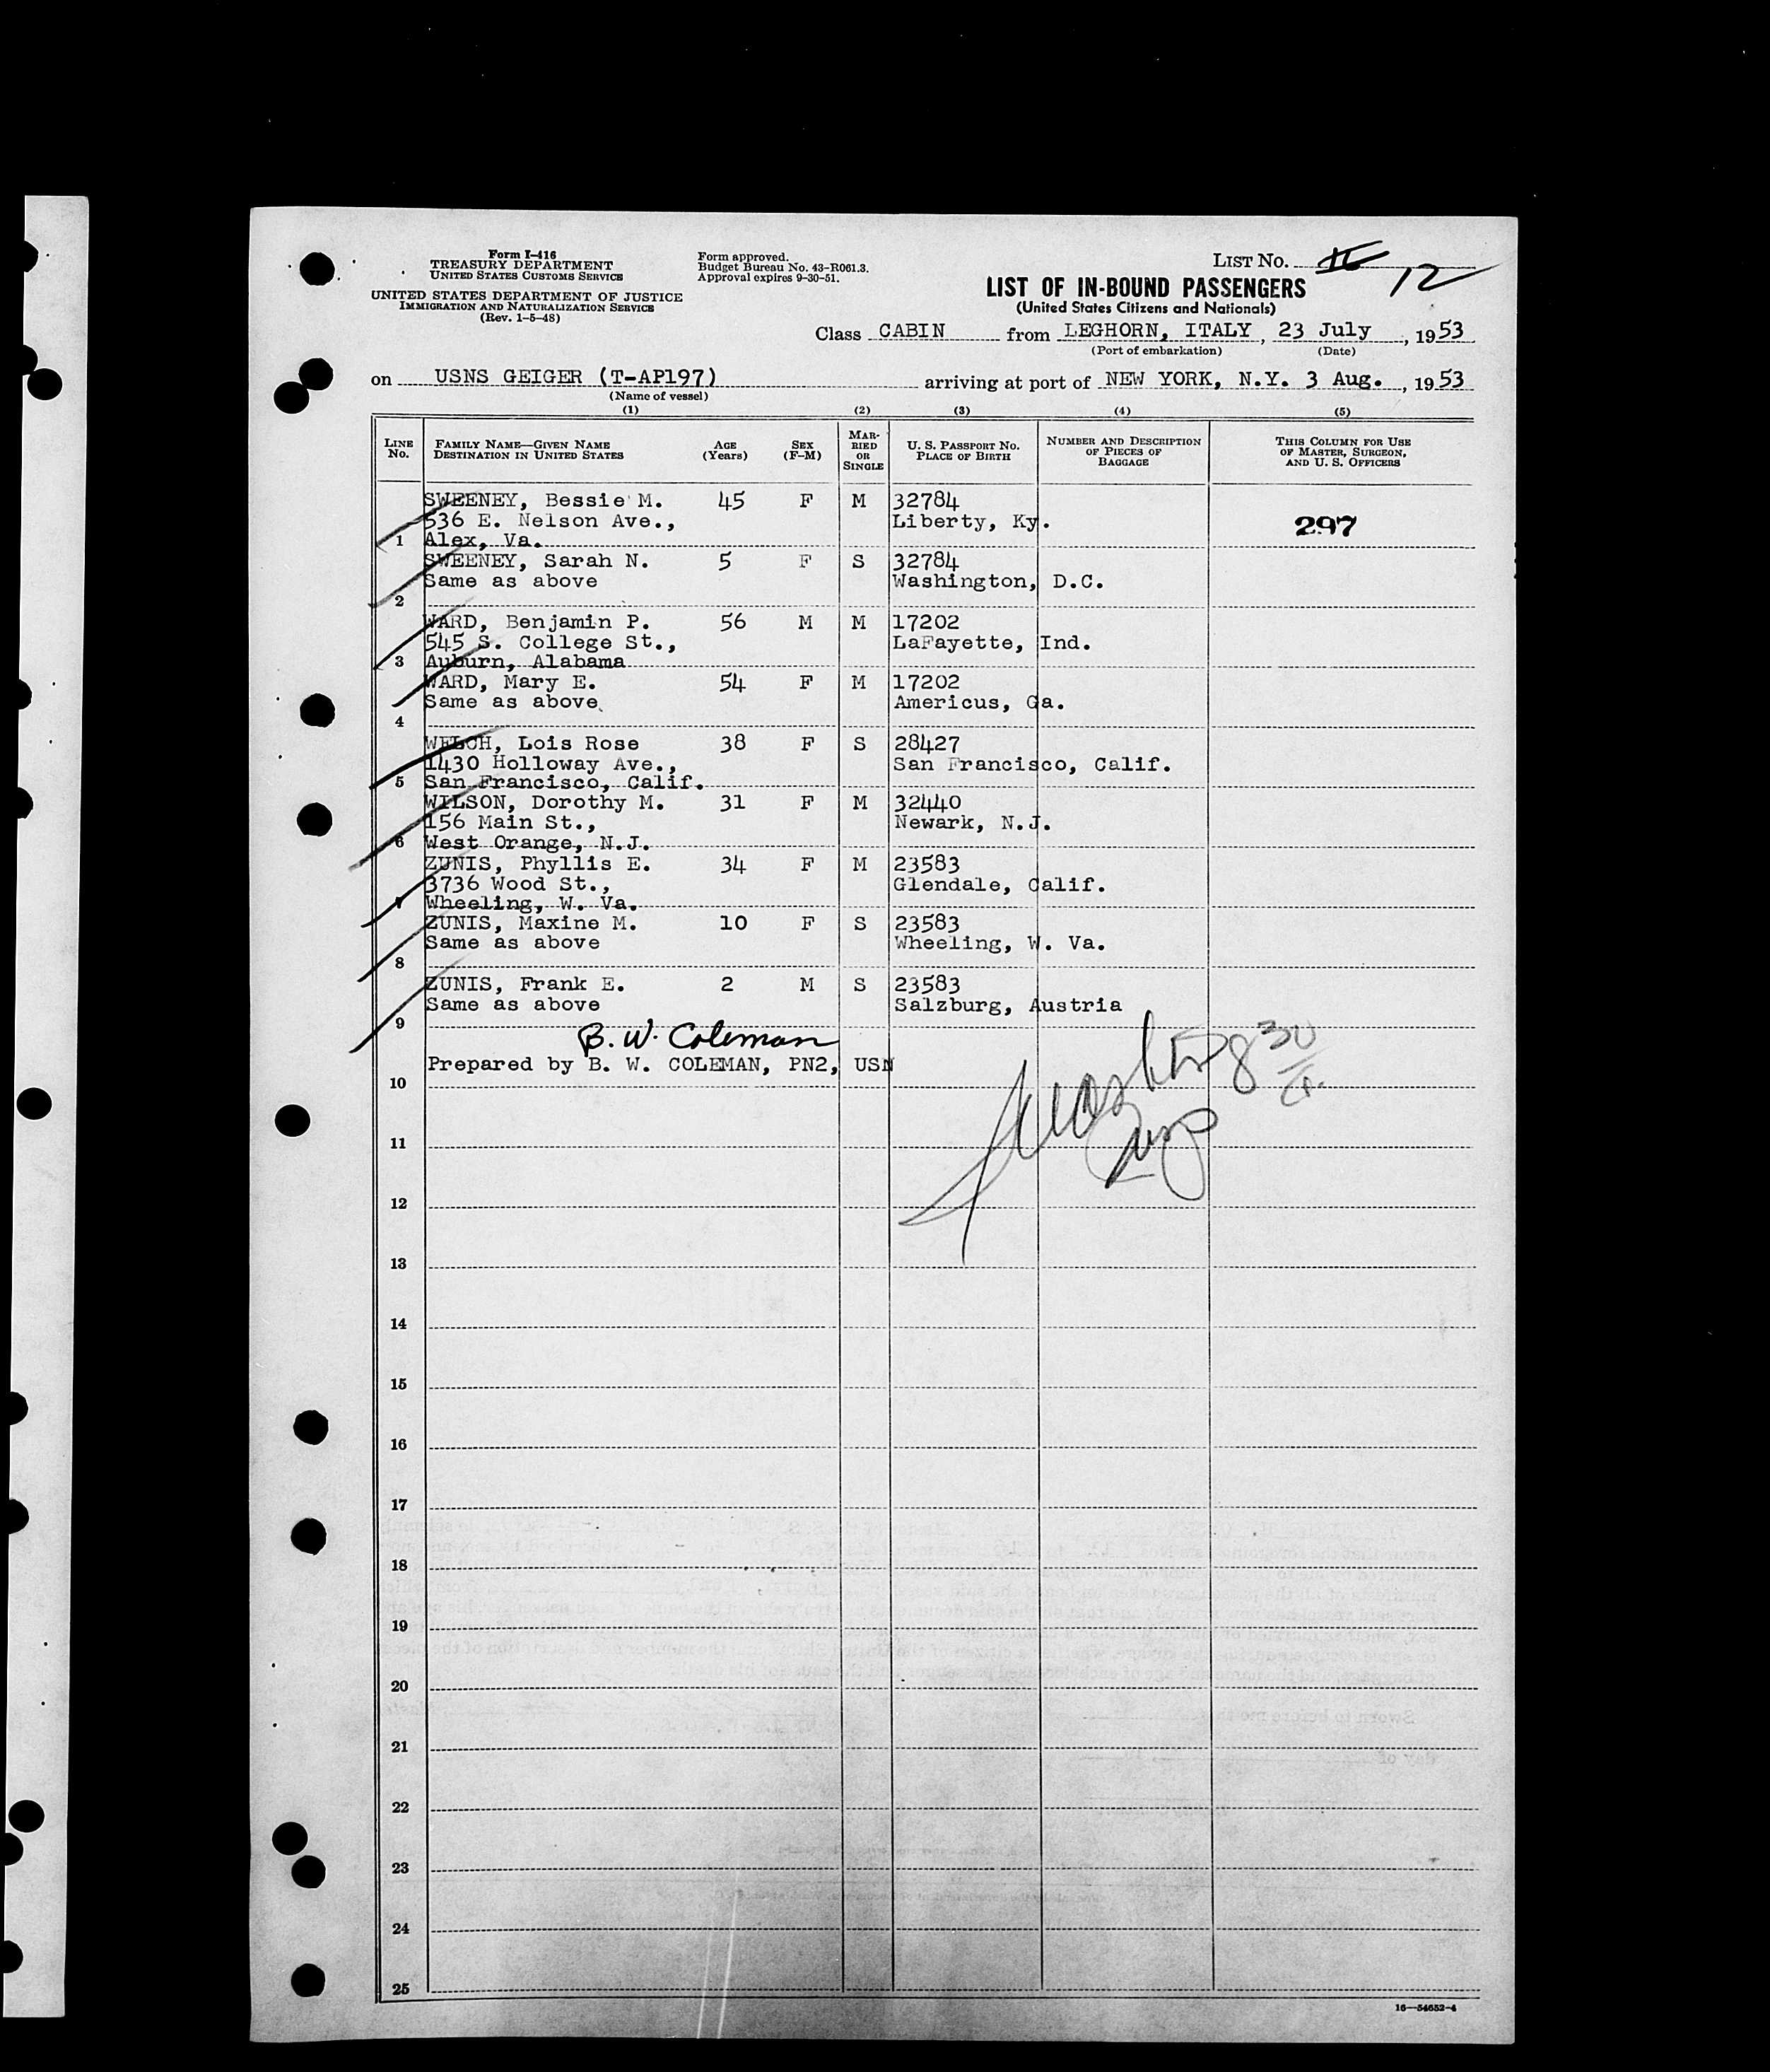 Form I-416
TREASURY DEPARTMENT
UNITED STATES CUSTOMS SERVICE
UNITED STATES DEPARTMENT OF JUSTICE
IMMIGRATION AND NATURALIZATION SERVICE
(Rev. 1-5-48)
Form approved.
Budget Bureau No. 43-R061.3.
Approval expires 9-30-51.
LIST No. 12
LIST OF IN-BOUND PASSENGERS
(United States Citizens and Nationals)
Class CABIN from LEGHORN, ITALY, 23 July, 1953
(Port of embarkation) (Date)
on USNS GEIGER (T-AP197) arriving at port of NEW YORK, N.Y. 3 Aug., 1953
(Name of vessel)
(1) (2) (3) (4) (5)
LINE No. FAMILY NAME—GIVEN NAME DESTINATION IN UNITED STATES AGE (Years) SEX (F-M) MARRIED OR SINGLE U. S. PASSPORT No. PLACE OF BIRTH NUMBER AND DESCRIPTION OF PIECES OF BAGGAGE THIS COLUMN FOR USE OF MASTER, SURGEON, AND U. S. OFFICERS
SWEENEY, Bessie M. 45 F M 32784
536 E. Nelson Ave., Liberty, Ky. 297
1 Alex, Va.
SWEENEY, Sarah N. 5 F S 32784
Same as above Washington, D.C.
2
WARD, Benjamin P. 56 M M 17202
545 S. College St., LaFayette, Ind.
3 Auburn, Alabama
WARD, Mary E. 54 F M 17202
Same as above Americus, Ga.
4
WELCH, Lois Rose 38 F S 28427
1430 Holloway Ave., San Francisco, Calif.
5 San Francisco, Calif.
WILSON, Dorothy M. 31 F M 32440
156 Main St., Newark, N.J.
6 West Orange, N.J.
ZUNIS, Phyllis E. 34 F M 23583
3736 Wood St., Glendale, Calif.
7 Wheeling, W. Va.
ZUNIS, Maxine M. 10 F S 23583
Same as above Wheeling, W. Va.
8
ZUNIS, Frank E. 2 M S 23583
Same as above Salzburg, Austria
9
B. W. Coleman
Prepared by B. W. COLEMAN, PN2, USN
10
11
12
13
14
15
16
17
18
19
20
21
22
23
24
25
16—54652-4